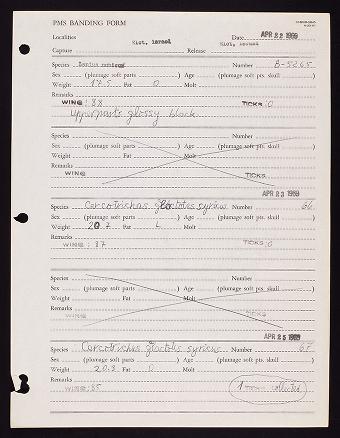 PMS BANDING FORM
Localities Date APR 22 1969
Eilat, Israel Eilat, Israel
Capture Release
Species Number B-5265
Sex (plumage soft parts ) Age (plumage soft pts. skull )
Weight 17.5 Fat 0 Molt
Remarks
WING: 88 TICKS: 0
Upperparts glossy black
Species Number
Sex (plumage soft parts ) Age (plumage soft pts. skull )
Weight Fat Molt
Remarks
WING TICKS
APR 23 1969
Species Cercotrichas galactotes syriacus Number 66
Sex (plumage soft parts ) Age (plumage soft pts. skull )
Weight 20.7 Fat L Molt
Remarks
WING: 87 TICKS: 0
Species Number
Sex (plumage soft parts ) Age (plumage soft pts. skull )
Weight Fat Molt
Remarks
WING TICKS
APR 25 1969
Species Cercotrichas galactotes syriacus Number 67
Sex (plumage soft parts ) Age (plumage soft pts. skull )
Weight 20.8 Fat 0 Molt
Remarks
WING: 85 1 collected